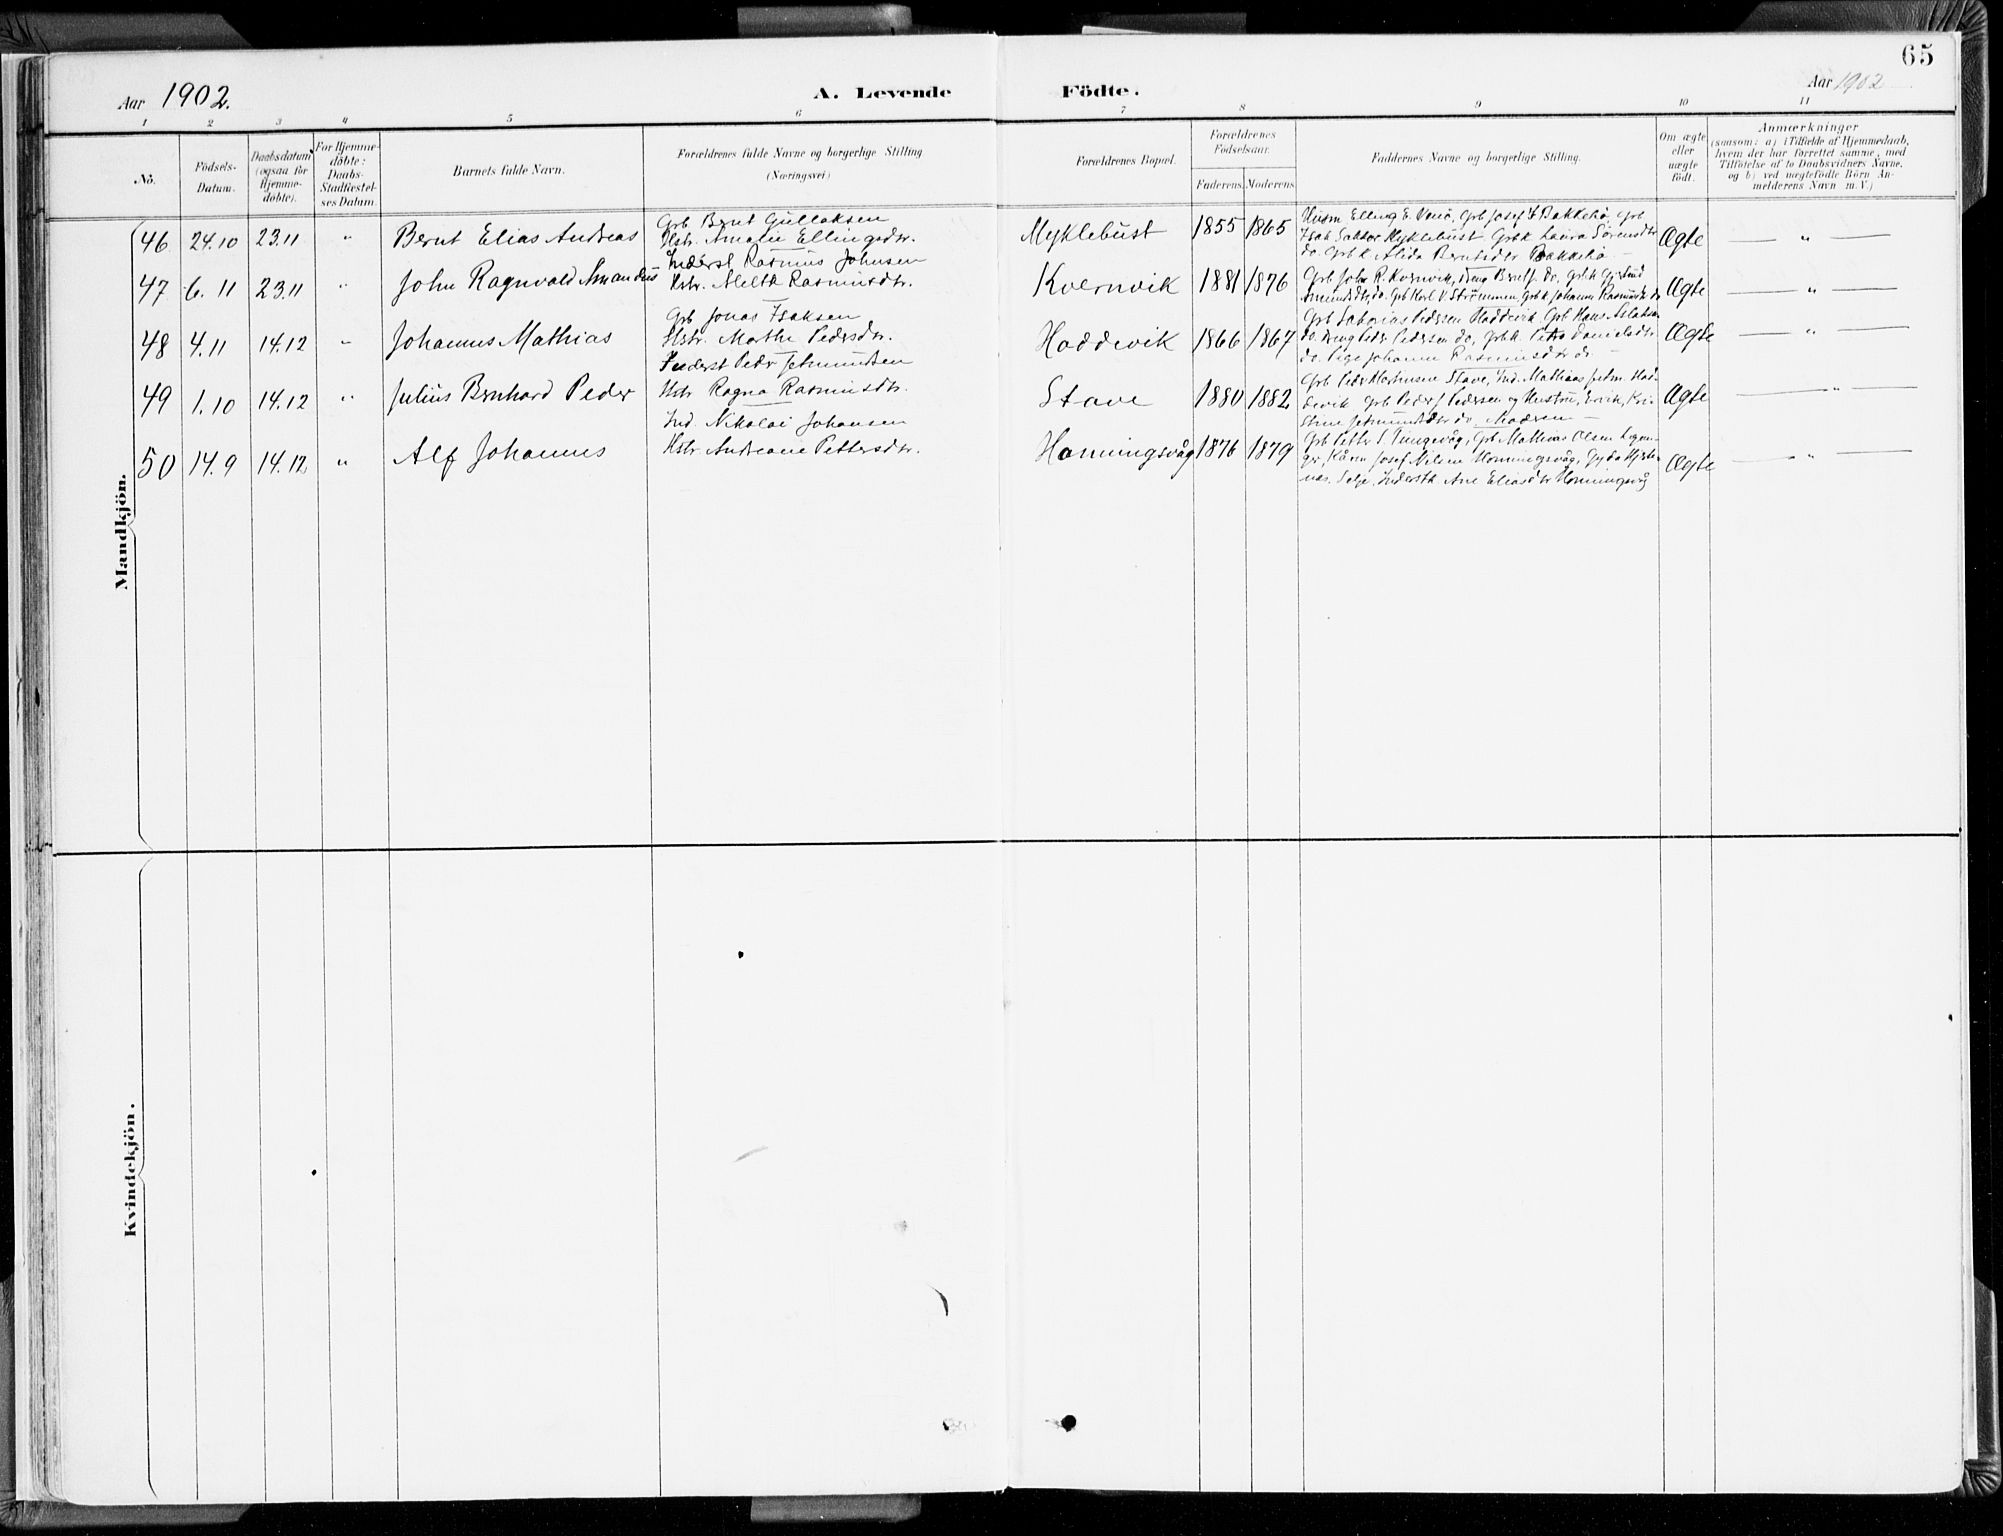 65
Aar 1902.
A. Levende Födte.
Aar 1902
1 2 3 4 5 6 7 8 9 10 11
No.
Födsels-Datum.
Daabsdatum (ogsaa for Hjemme-döbte).
For Hjemme-döbte: Daabs-Stadfæstel-ses Datum.
Barnets fulde Navn.
Forældrenes fulde Navne og borgerlige Stilling (Næringsvei)
Forældrenes Bopæl.
Forældrenes Födselsaar.
Faderens. Moderens.
Faddernes Navne og borgerlige Stilling.
Om ægte eller uægte födt.
Anmærkninger
(saasom: a) i Tilfælde af Hjemmedaab,
hvem der har forrettet samme, med
Tilföielse af to Daabsvidners Navne,
og b) ved uægtefödte Börn An-
melderens Navn m. V.)
Mandkjön.
46 24.10 23.11 " Bernt Elias Andreas
Grb Bernt Gullaksen
Hstr. Amalie Ellingsdtr.
Myklebust 1855 1865
Husm Elling E. Venö, Grb Josef Bakkebö, Grb
Isak Myklebust Grbk Laura Sörensdtr
do. Grbk Alida Berntsdtr Bakkebö
Ægte — " —
47 6.11 23.11 " John Ragnvald Amandus
Inderst Rasmus Johnsen
Hstr. Rasmusdtr.
Kvernvik 1881 1876
Grb John R. Kvernvik, do. Grbk
do. Grb Karl V. Strömmen, Grbk Johanne Rasmusdtr do
Ægte — " —
48 4.11 14.12 " Johannes Mathias
Grb Jonas Isaksen
Hstr. Marthe Pedersdtr.
Hoddevik 1866 1867
Grb Pedersen Hoddevik Grb Hans
do. Peder Pedersen do, Grbk Petra Danielsdtr
do. Pige Johanne Rasmusdtr do
Ægte — " —
49 1.10 14.12 " Julius Bernhard Peder
Inderst Peder Jetmundsen
Hstr Ragna Rasmusdtr.
Stave 1880 1882
Grb Peder Stave, Ind. Mathias Jetm. Hod-
devik Grb Peder J Pedersen og Hustru, Ervik, Kri-
stine Jetmundsdtr do Moderen —
Ægte — " —
50 14.9 14.12 " Alf Johannes
Ind. Nikolai Johansen
Hstr. Andreane Pettersdtr.
Honningsvåg 1876 1879
Grb Petter S. Tungevåg, Grb Mathias Olsen
Josef Nilsen Honningsvåg, Gyda
Selje, Inderstk Ane Eliasdtr Honningsvåg
Ægte — " —
Kvindekjön.